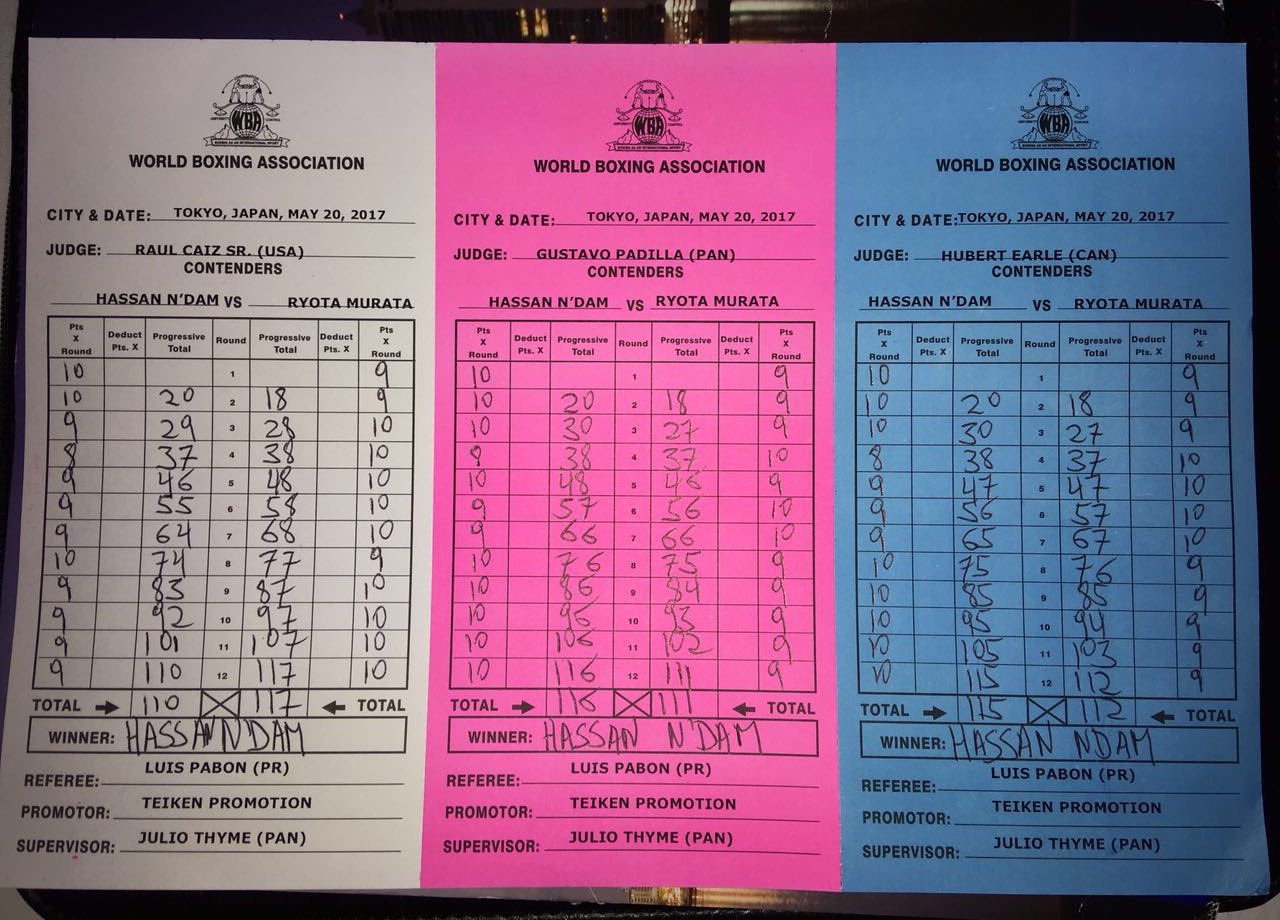 COOPERATION
UNIFORMITY CONTROL
WBA
BOXING AS AN INTERNATIONAL SPORT
WORLD BOXING ASSOCIATION
CITY & DATE: TOKYO, JAPAN, MAY 20, 2017
JUDGE: RAUL CAIZ SR. (USA)
CONTENDERS
HASSAN N'DAM VS RYOTA MURATA
Pts X Round Deduct Pts. X Progressive Total Round Progressive Total Deduct Pts. X Pts X Round
10 1 9
10 20 2 18 9
9 29 3 28 10
8 37 4 38 10
9 46 5 48 10
9 55 6 58 10
9 64 7 68 10
10 74 8 77 9
9 83 9 87 10
9 92 10 97 10
9 101 11 107 10
9 110 12 117 10
TOTAL 110 117 TOTAL
WINNER: HASSAN N'DAM
REFEREE: LUIS PABON (PR)
PROMOTOR: TEIKEN PROMOTION
SUPERVISOR: JULIO THYME (PAN)
COOPERATION
UNIFORMITY CONTROL
WBA
BOXING AS AN INTERNATIONAL SPORT
WORLD BOXING ASSOCIATION
CITY & DATE: TOKYO, JAPAN, MAY 20, 2017
JUDGE: GUSTAVO PADILLA (PAN)
CONTENDERS
HASSAN N'DAM VS RYOTA MURATA
Pts X Round Deduct Pts. X Progressive Total Round Progressive Total Deduct Pts. X Pts X Round
10 1 9
10 20 2 18 9
10 30 3 27 9
8 38 4 37 10
10 48 5 46 9
9 57 6 56 10
9 66 7 66 10
10 76 8 75 9
10 86 9 84 9
10 96 10 93 9
10 106 11 102 9
10 116 12 111 9
TOTAL 116 111 TOTAL
WINNER: HASSAN N'DAM
REFEREE: LUIS PABON (PR)
PROMOTOR: TEIKEN PROMOTION
SUPERVISOR: JULIO THYME (PAN)
COOPERATION
UNIFORMITY CONTROL
WBA
BOXING AS AN INTERNATIONAL SPORT
WORLD BOXING ASSOCIATION
CITY & DATE: TOKYO, JAPAN, MAY 20, 2017
JUDGE: HUBERT EARLE (CAN)
CONTENDERS
HASSAN N'DAM VS RYOTA MURATA
Pts X Round Deduct Pts. X Progressive Total Round Progressive Total Deduct Pts. X Pts X Round
10 1 9
10 20 2 18 9
10 30 3 27 9
8 38 4 37 10
9 47 5 47 10
9 56 6 57 10
9 65 7 67 10
10 75 8 76 9
10 85 9 85 9
10 95 10 94 9
10 105 11 103 9
10 115 12 112 9
TOTAL 115 112 TOTAL
WINNER: HASSAN NDAM
REFEREE: LUIS PABON (PR)
PROMOTOR: TEIKEN PROMOTION
SUPERVISOR: JULIO THYME (PAN)